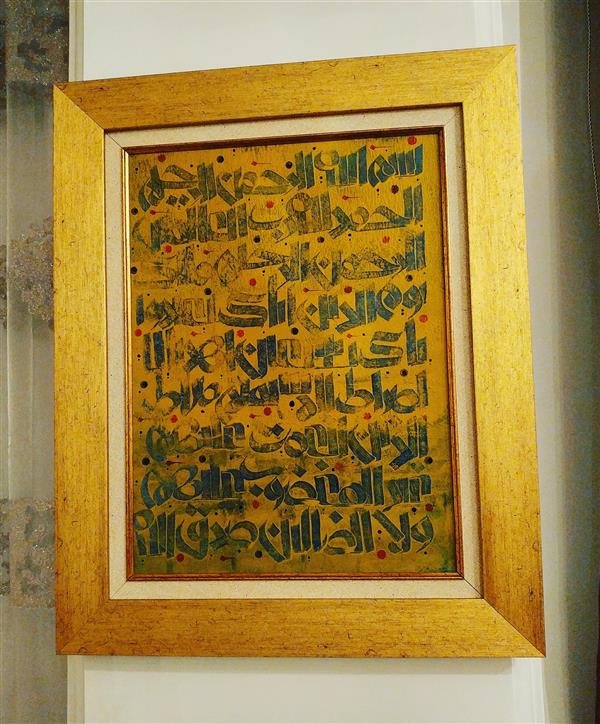 بسم الله الرحمن الرحيم
الحمد لله رب العالمين
الرحمن الرحيم ملك
يوم الدين اياك نعبد وا
ياك نستعين اهدنا ا
لصراط المستقيم صراط
الذين انعمت عليهم
غير المغضوب عليهم
ولا الضالين صدق الله